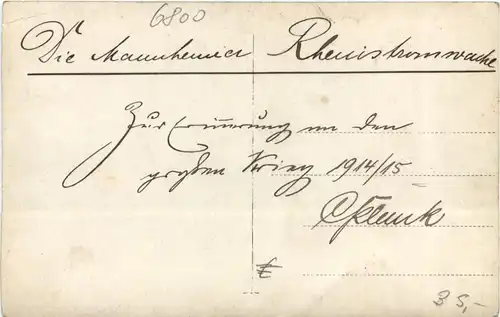 6800
Die Mannheimer Rheinstromwache
Zur Erinnerung an den
großen Krieg 1914/15
35,-